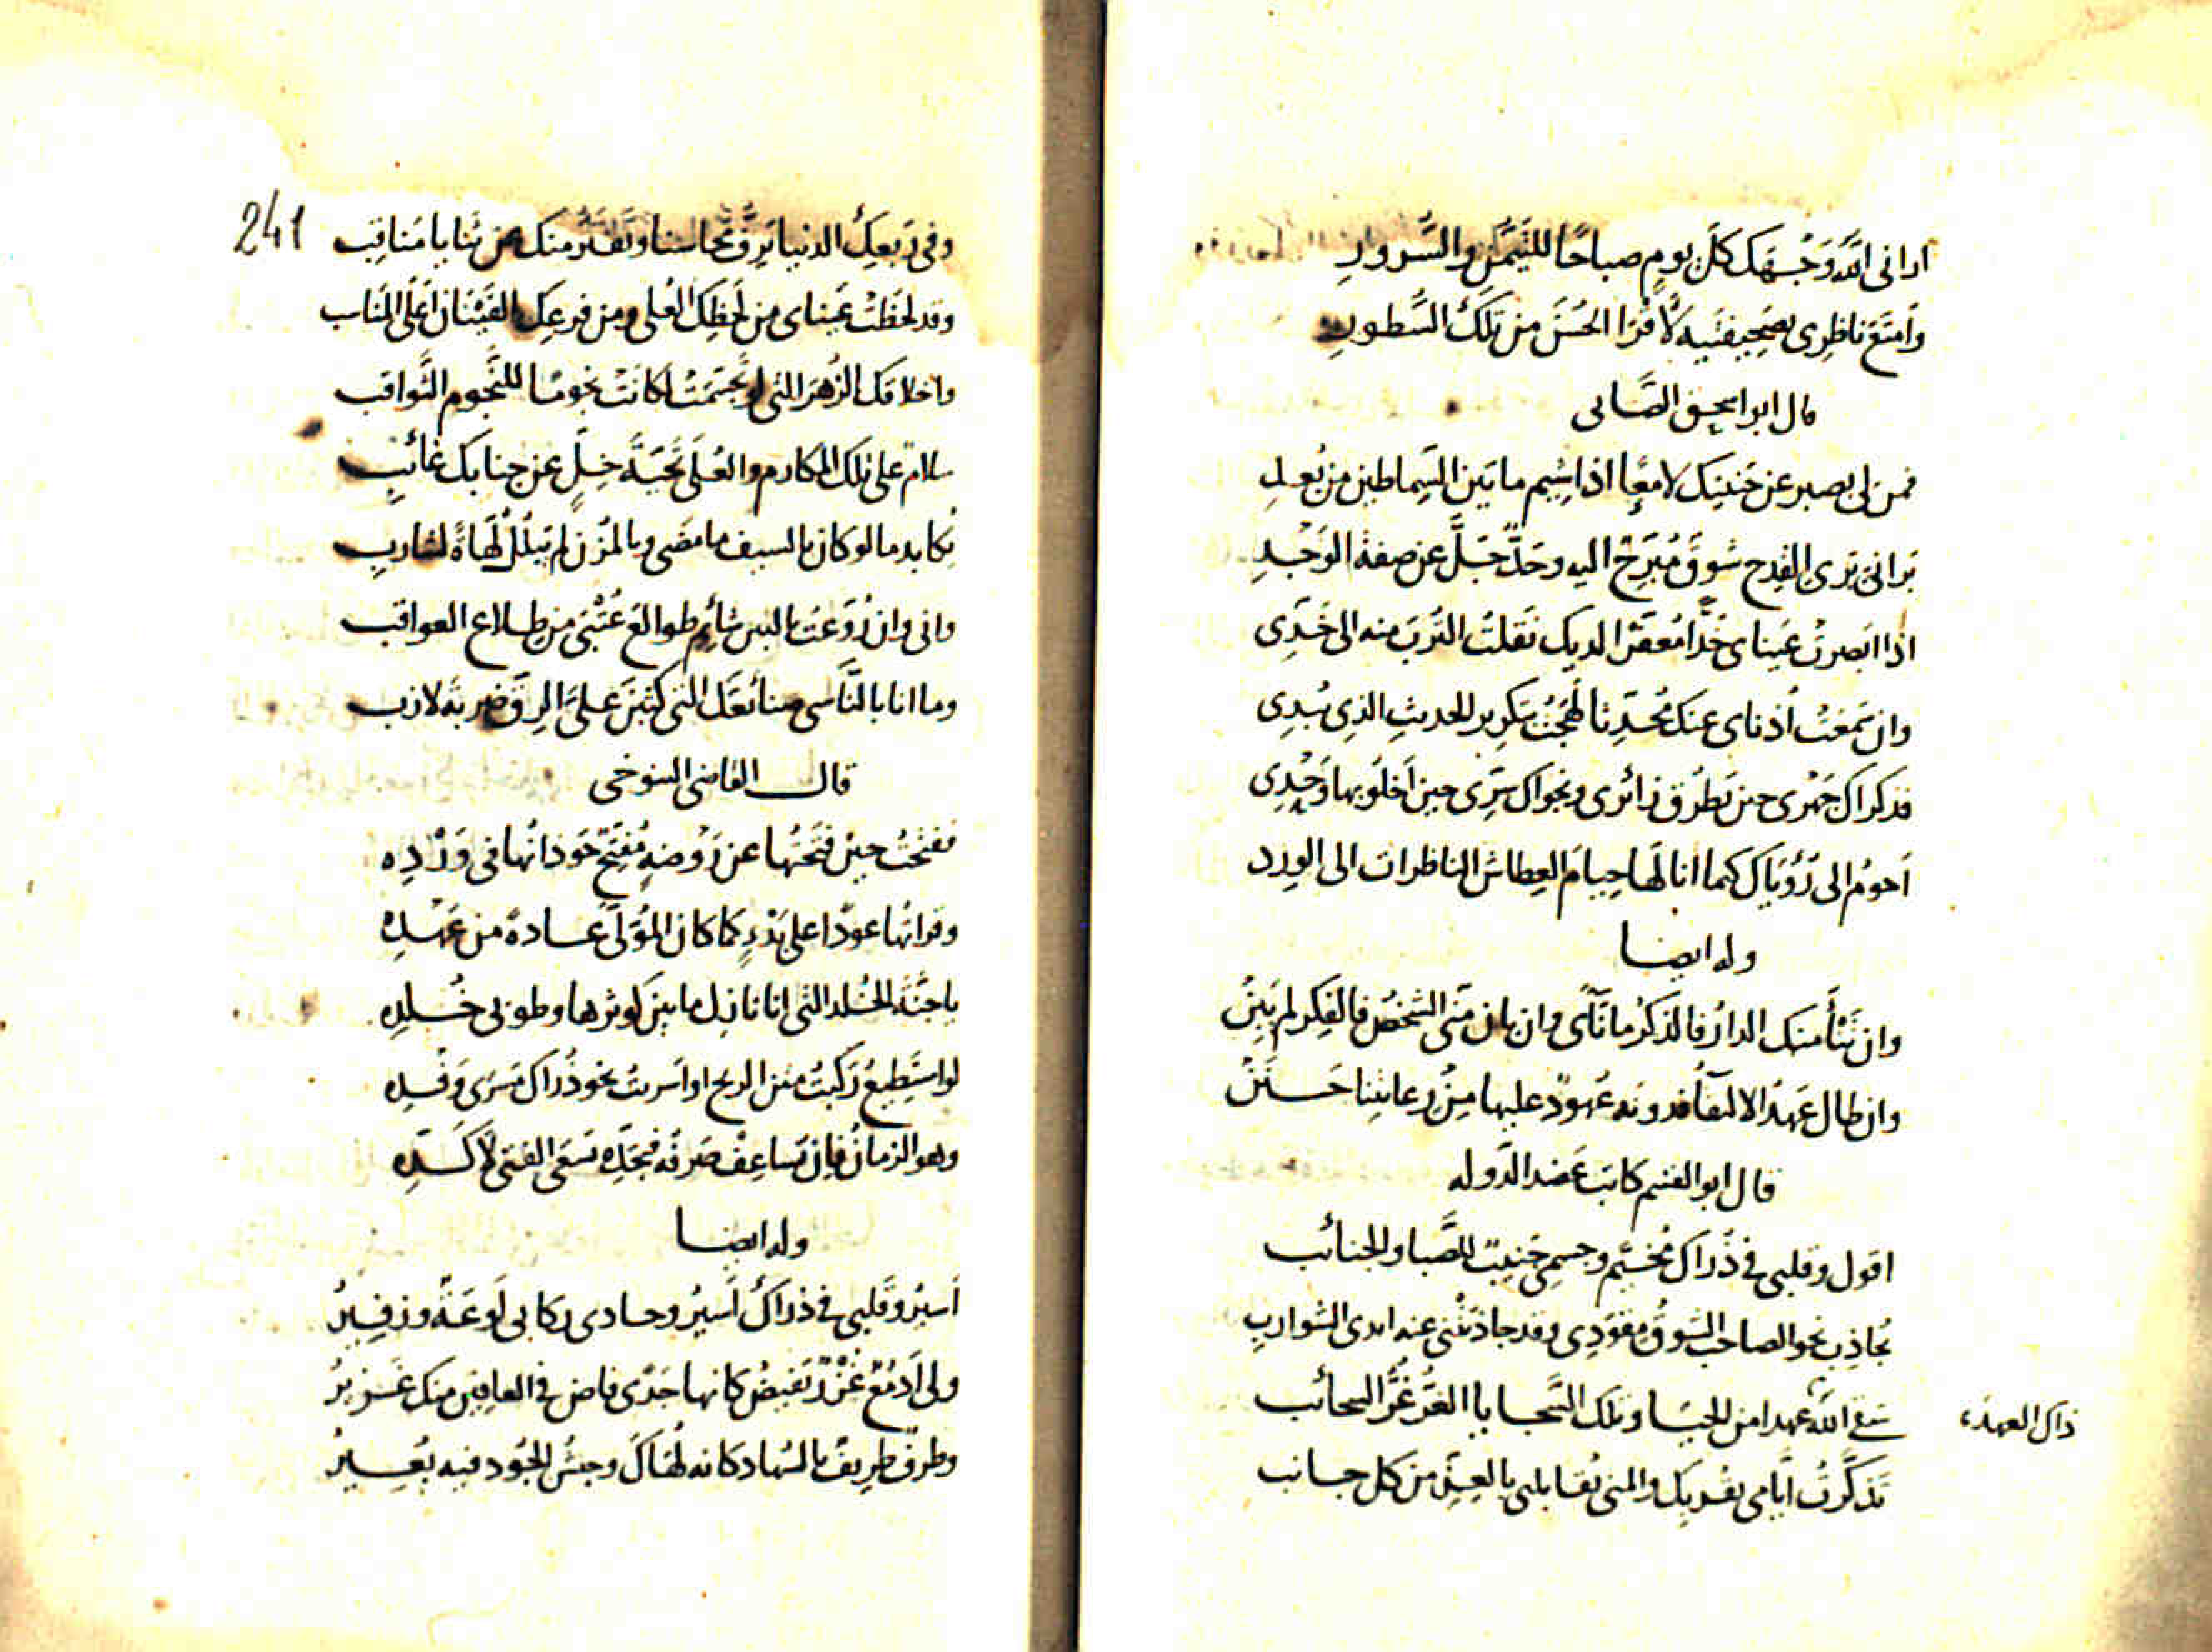 ارانى الله وَجْهَك كلّ يومٍ صباحًا للتَّيَمُّنِ والسُّرورِ
وأَمتَعَ ناظِرى بصَحِيفتَيه لأَقْرَا الحُسْنَ من تلك السُّطورِ
قال ابو اسحق الصَّابى
فمن لى بصبر عن جَنْبِك لامعًا اذا شِيم ما بَين السِّماطين من بُعدِ
بَرانى بَرى القِدح شوقٌ مُبَرِّحٌ اليه وحَدٌّ جَلَّ عن صفة الوَجْدِ
اذا ابصرتْ عَيناى خَدًّا مُعفَّرًا لديك نَقلتُ التُّربَ منه الى خَدِّى
وان سَمعَتْ أُذناى عنك مُحَدِّثا لَهَجْتُ بتكرير للحديثِ الذى يُبدِى
فذكراك جَهْرى حين تَطرُق زائرى ونجواك سِرِّى حين أَخلُو بها وَحْدِى
أَحومُ الى رُؤْيَاك كيما انالَها حِيامَ العِطاش الناظرات الى الوِرد
وله ايضا
وان تَنْأَ منك الدارُ فالذكرُ ما نَأى وان بان منّى الشخصُ فالفِكر لم يَبِنْ
وان طال عَهدُ الالتقآ فدونه عُهودٌ عليها من رعايتنا حَسَنْ
قال ابو القسم كاتب عَضد الدَّوله
اقول وقلبى فى ذُراك مُخيَّم وجسمى جَنيبٌ للصَّبا والجنائب
يُجاذِب نحو الصاحب الشوقُ مِقوَدِى وقد جاذبتْنى عنه ايدى الشوازبِ
سقى الله عهدا من الحيا وتلك السَّجايا الغُرَّ غُرَّ السحائب
ذاك العهدَ،
تَذكَّرتُ أيّامى بقُربِك والمنى تُقابلنى بالعِزِّ من كل جانب
241
وفى رَبعِكَ الدنيا تَرِفُّ محاسنا وتَفتَرُّ منك عن ثنايا مَناقِب
وقد لحَظَتْ عَيناى من لَحظِك العُلى ومن فرعِك الفَيْنان أَعلَى المَناسب
واخلاقك الزُّهرَ التى لو تجَسّمَتْ لكانَتْ نجومًا للنُّجوم الثَّواقب
سلامٌ على تلك المكارم والعُلَى تحيَّةَ خِلٍّ عن جنابك غائبٍ
يُكابد ما لو كان بالسيف ما مَضى وبالمُزن لم تَبْلُلْ لَهاةً لشاربِ
وانى وان رُوِّعتُ بالبين شائِم طوالعَ عُتْبَى من طلاع العواقب
وما انا بالنَّاسى صنائعَك التى كَتبْنَ علىَّ الرِقَّ ضربةَ لازب
قال القاضى التنوخى
نفحَتْ حين فتَحتُها عن رَوْضةٍ مُفتَّحٌ حَوذانُها فى وَرْدِه
وقراتُها عودًا على بَدْءٍ كما كان المُوَلَّى عادةً من عَهْدِه
يا جنّةَ الخُلد التى انا نازل ما بين كوثرها وطوبى خُلدِه
لو استَطيعُ رَكبتُ متن الريح او أسريتُ نحو ذُراك مَسرَى وَفْدِه
وهو الزمانُ فان تُساعِفْ صَرفُه فبجَدِّه سَعَى الفتى لا كَدِّه
وله ايضا
أَسيرُ وقَلبى فى ذراك أسيرُ وحادى ركابى لَوعَةٌ وزفيرُ
ولى أَدمُعٌ غُزْرٌ تفيضُ كانها جَدًى فاض فى العافِينَ منك غَزيرُ
وطرفٌ طريفٌ بالسُّهاد كانه لُهاكَ وجيشُ الجُود فيه يُغِيرُ